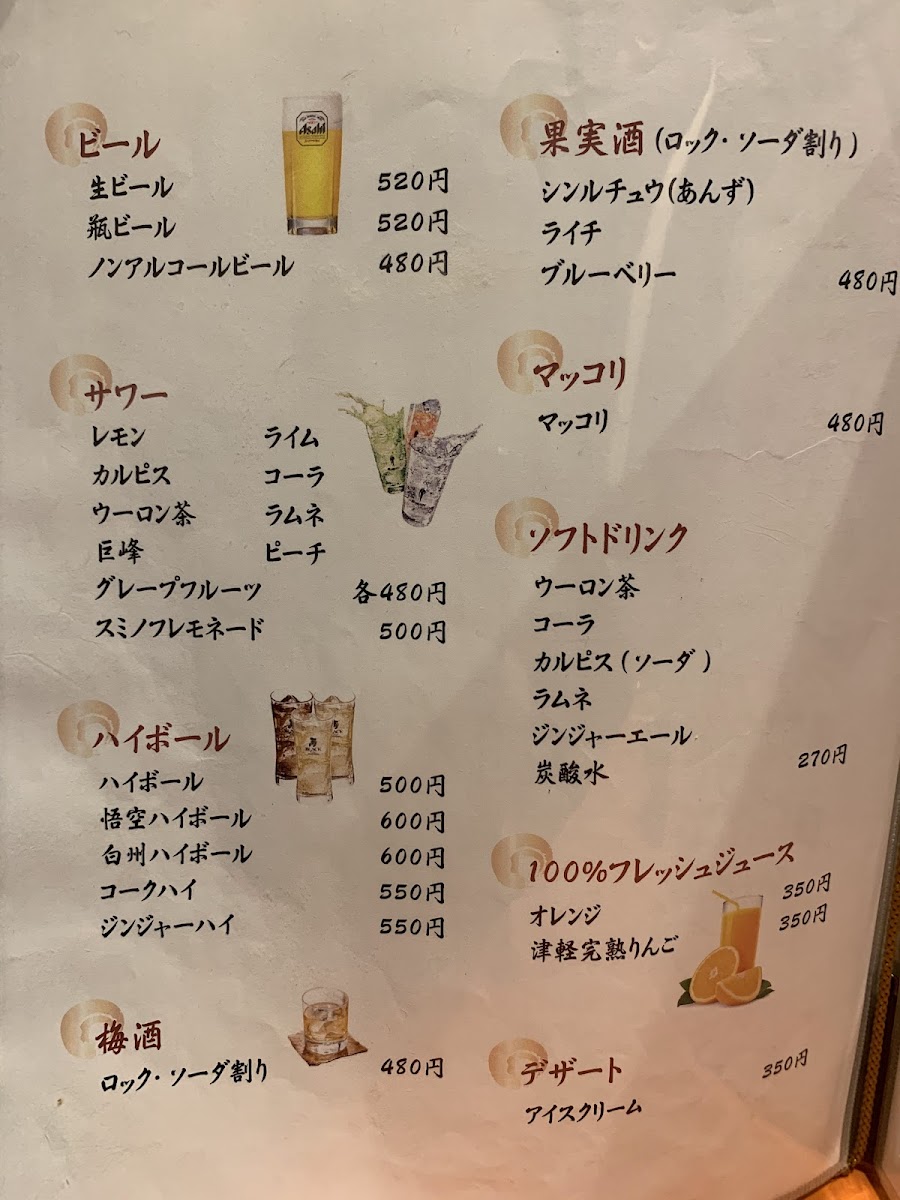 ビール
Asahi
生ビール 520円
瓶ビール 520円
ノンアルコールビール 480円
サワー
レモン ライム
カルピス コーラ
ウーロン茶 ラムネ
巨峰 ピーチ
グレープフルーツ 各480円
スミノフレモネード 500円
ハイボール
ハイボール 500円
悟空ハイボール 600円
白州ハイボール 600円
コークハイ 550円
ジンジャーハイ 550円
梅酒
ロック・ソーダ割り 480円
果実酒(ロック・ソーダ割り)
シンルチュウ(あんず)
ライチ
ブルーベリー 480円
マッコリ
マッコリ 480円
ソフトドリンク
ウーロン茶
コーラ
カルピス(ソーダ)
ラムネ
ジンジャーエール
炭酸水 270円
100%フレッシュジュース
オレンジ 350円
津軽完熟りんご 350円
デザート
アイスクリーム 350円